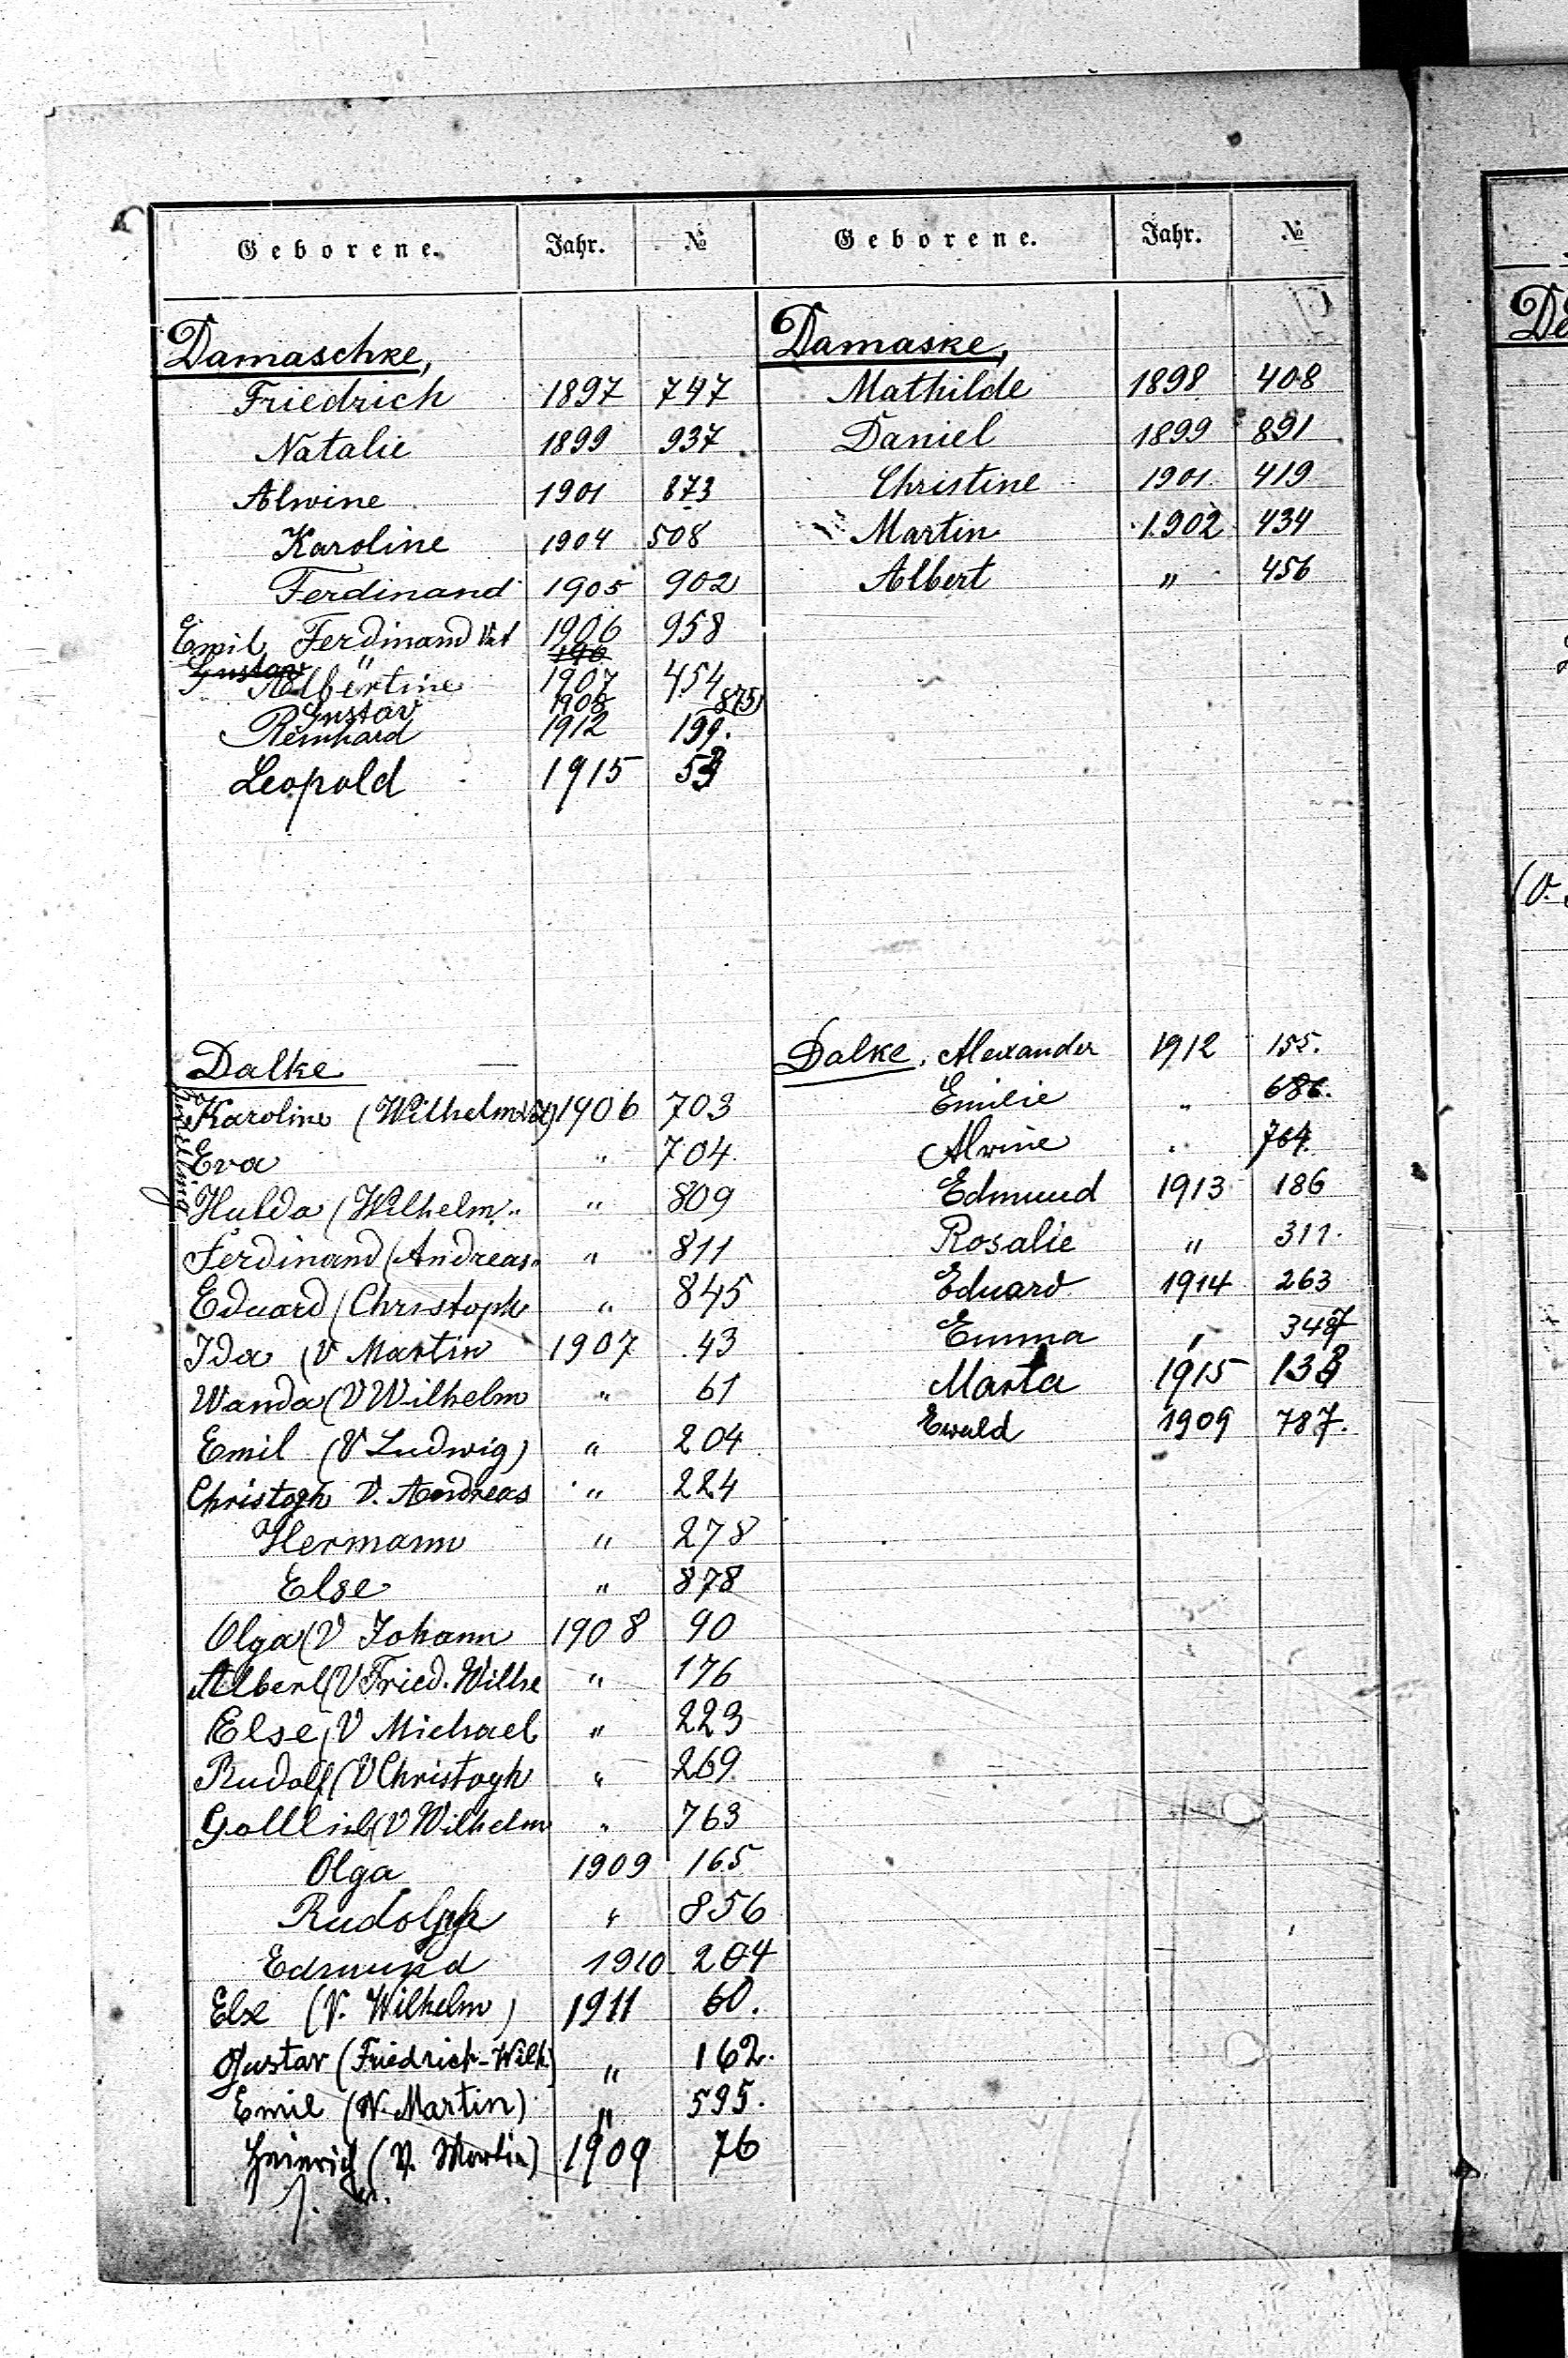 Geborene. Jahr. №
Damaschke,
Friedrich 1897 747
Natalie 1899 937
Alwine 1901 873
Karoline 1904 508
Ferdinand 1905 902
Emil Ferdinand Vat 1906 958
Gustav " 190
Albertine 1907 454
Gustav 1908 875
Reinhard 1912 199.
Leopold 1915
Dalke
Zwillinge
Karoline (Wilhelm Vat) 1906 703
Eva " 704
Hulda (Wilhelm " " 809
Ferdinand (Andreas " " 811
Eduard (Christoph " 845
Ida (V Martin 1907 43
Wanda (V Wilhelm " 61
Emil (V Ludwig) " 204
Christoph V. Andreas " 224
Hermann " 278
Else " 878
Olga (V Johann 1908 90
Albert (V Fried. Wilhe " 176
Else (V Michael " 223
Rudolf (V Christoph " 269
Gottlieb (V Wilhelm " 763
Olga 1909 165
Rudolph " 856
Edmund 1910 204
Else (V. Wilhelm) 1911 60.
Gustav (Friedrich-Wilh.) " 162.
Emil (V. Martin) " 595.
Heinrich (V. Martin) 1909 76
Geborene. Jahr. №
D
Damaske,
Mathilde 1898 408
Daniel 1899 891
Christine 1901 419
Martin 1902 434
Albert " 456
Dalke, Alexander 1912 155.
Emilie " 686.
Alwine " 764.
Edmund 1913 186
Rosalie " 311.
Eduard 1914 263
Emma "
Marta 1915
Ewald 1909 787.
De
(V.